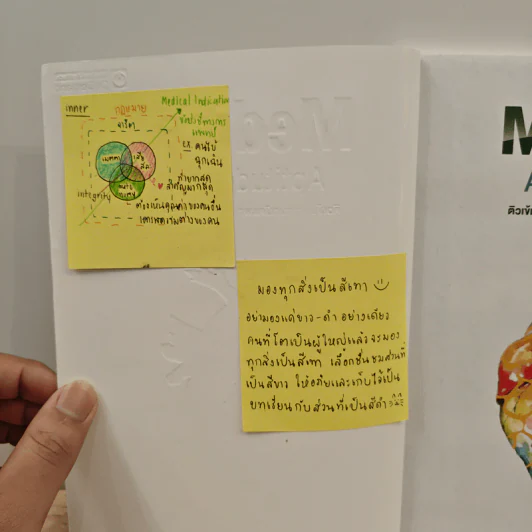 inner
กฎหมาย
จารีต
Medical Indication
ข้อบ่งชี้ทางการ
แพทย์
ex คนไข้
ฉุกเฉิน
เมตตา
integrity
ทำยากสุด
สำคัญมากสุด
ต้องเห็นคุณค่าของคนอื่น
เคารพความต่างของคน
มองทุกสิ่งเป็นสีเทา
อย่ามองแค่ขาว-ดำ อย่างเดียว
คนที่โตเป็นผู้ใหญ่แล้วจะมอง
ทุกสิ่งเป็นสีเทา เลือกชื่นชมส่วนที่
เป็นสีขาว ให้อภัยและเก็บไว้เป็น
บทเรียน กับส่วนที่เป็นสีดำ
Med
M
A
ติวเข้